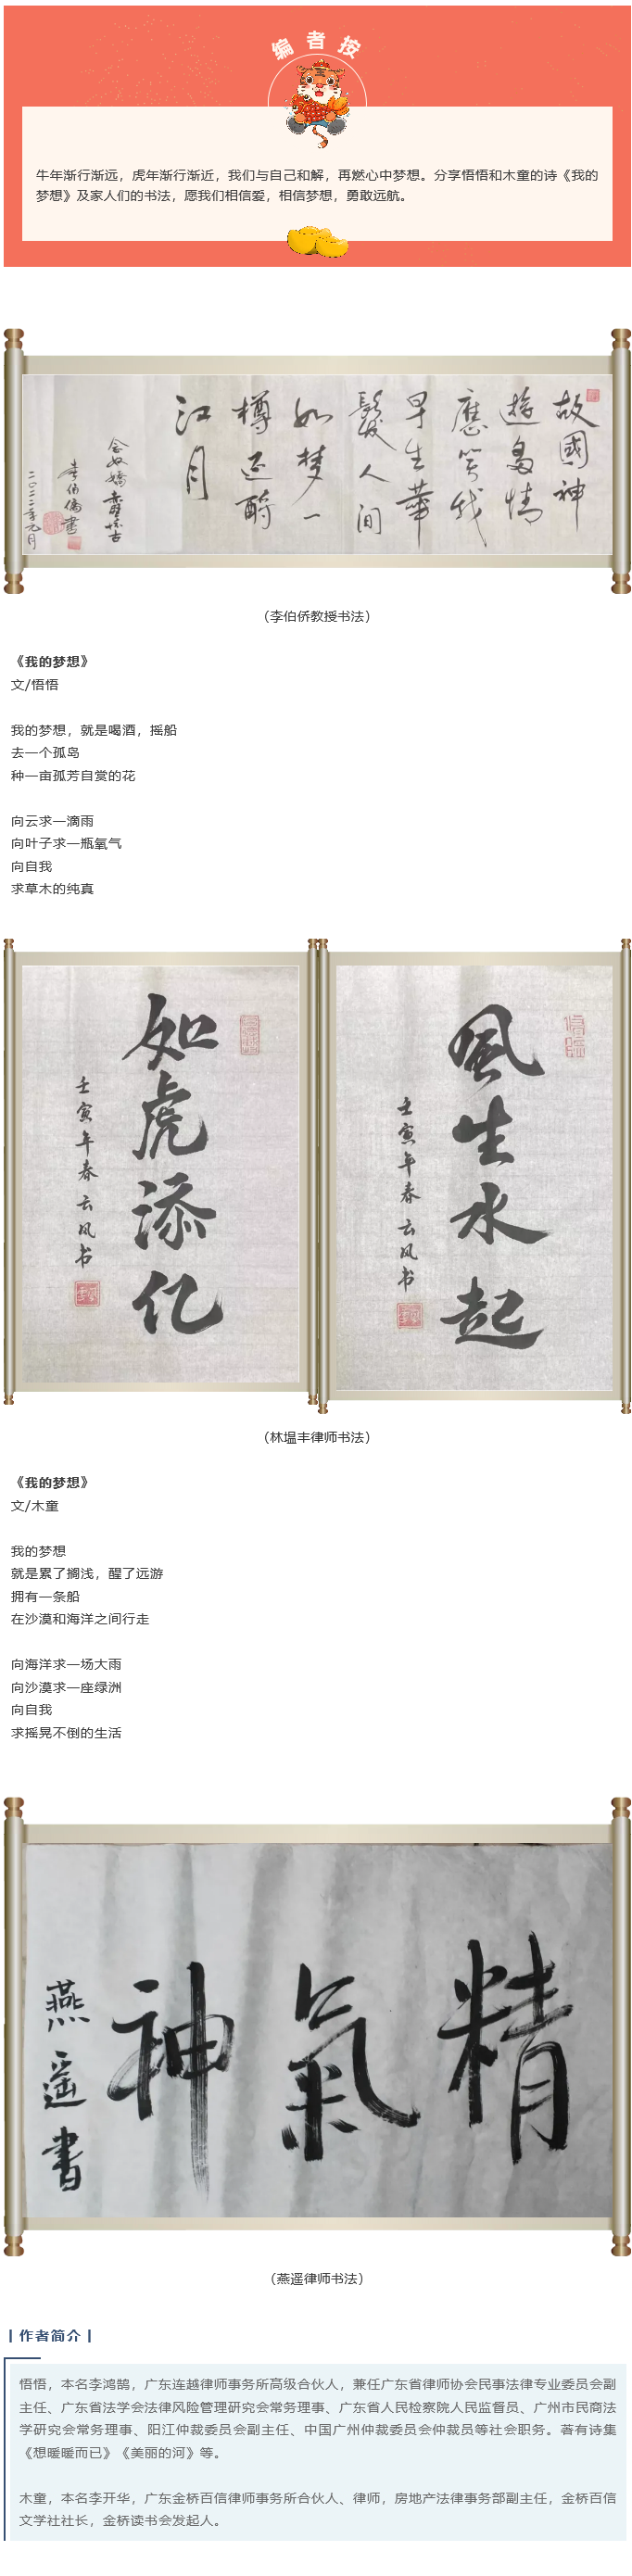 编者按
牛年渐行渐远，虎年渐行渐近，我们与自己和解，再燃心中梦想。分享悟悟和木童的诗《我的
梦想》及家人们的书法，愿我们相信爱，相信梦想，勇敢远航。
故國神
遊多情
應笑我
早生華
髮人间
如梦一
樽还酹
江月
念奴嬌赤壁怀古
李伯侨書
二〇二二年元月
（李伯侨教授书法）
《我的梦想》
文/悟悟
我的梦想，就是喝酒，摇船
去一个孤岛
种一亩孤芳自赏的花
向云求一滴雨
向叶子求一瓶氧气
向自我
求草木的纯真
如虎添亿
壬寅年春云风书
風生水起
壬寅年春云风书
（林塭丰律师书法）
《我的梦想》
文/木童
我的梦想
就是累了搁浅，醒了远游
拥有一条船
在沙漠和海洋之间行走
向海洋求一场大雨
向沙漠求一座绿洲
向自我
求摇晃不倒的生活
精氣神
燕遥書
（燕遥律师书法）
丨作者简介丨
悟悟，本名李鸿鹄，广东连越律师事务所高级合伙人，兼任广东省律师协会民事法律专业委员会副
主任、广东省法学会法律风险管理研究会常务理事、广东省人民检察院人民监督员、广州市民商法
学研究会常务理事、阳江仲裁委员会副主任、中国广州仲裁委员会仲裁员等社会职务。著有诗集
《想暖暖而已》《美丽的河》等。
木童，本名李开华，广东金桥百信律师事务所合伙人、律师，房地产法律事务部副主任，金桥百信
文学社社长，金桥读书会发起人。